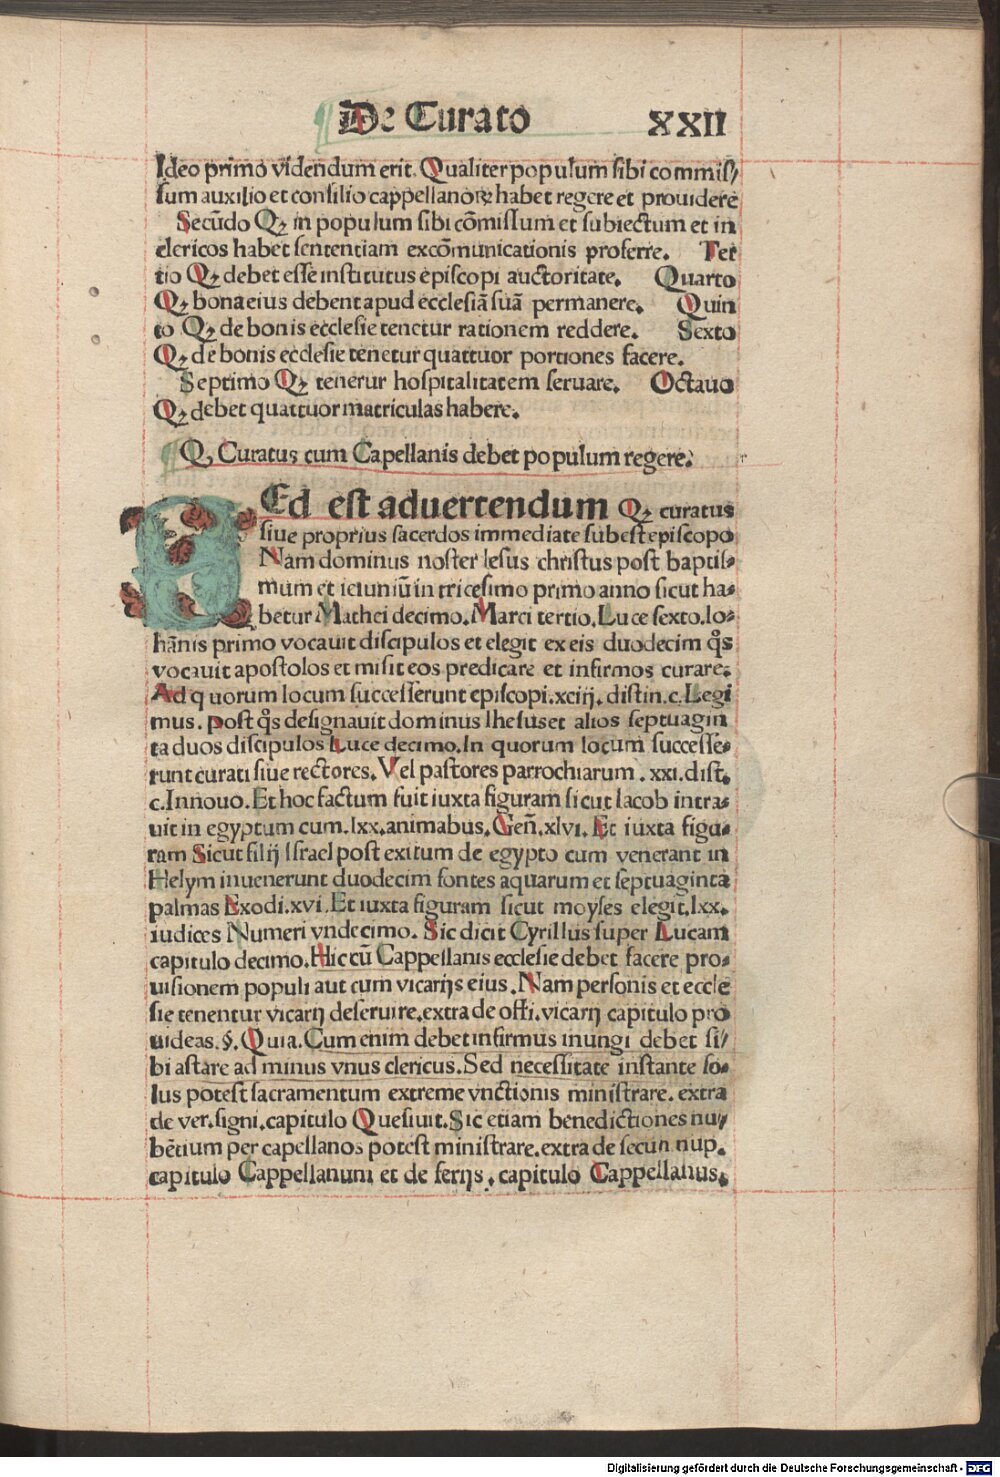 De Curato XXII
Ideo primo videndum erit. Qualiter populum sibi commiſ⸗
ſum auxilio et conſilio cappellanoꝝ habet regere et prouidere
Secūdo Qꝫ in populum ſibi cōmiſſum et ſubiectum et in
clericos habet ſententiam excōmunicationis proferre. Ter
tio Qꝫ debet eſſe inſtitutus epiſcopi auctoritate. Quarto
Qꝫ bona eius debent apud eccleſiā ſuā permanere. Quin
to Qꝫ de bonis eccleſie tenetur rationem reddere. Sexto
Qꝫ de bonis eccleſie tenetur quattuor portiones facere.
Septimo Qꝫ tenetur hoſpitalitatem ſeruare. Octauo
Qꝫ debet quattuor matriculas habere.
Qꝫ Curatus cum Capellanis debet populum regere.
SEd eſt aduertendum Qꝫ curatus
ſiue proprius ſacerdos immediate ſubeſt epiſcopo
Nam dominus noſter Ieſus chriſtus poſt baptiſ⸗
mum et ieiuniū in triceſimo primo anno ſicut ha⸗
betur Mathei decimo. Marci tertio. Luce ſexto. Io⸗
hānis primo vocauit diſcipulos et elegit ex eis duodecim q̄s
vocauit apoſtolos et miſit eos predicare et infirmos curare.
Ad quorum locum ſucceſſerunt epiſcopi. xciij. diſtin. c. Legi
mus. poſt q̄s deſignauit dominus Iheſus et alios ſeptuagin
ta duos diſcipulos Luce decimo. In quorum locum ſucceſſe⸗
runt curati ſiue rectores. Vel paſtores parrochiarum . xxi. diſt.
c. Innouo. Et hoc factum fuit iuxta figuram ſicut Iacob intra⸗
uit in egyptum cum. lxx. animabus. Geñ. xlvi. Et iuxta figu⸗
ram Sicut filij Iſrael poſt exitum de egypto cum venerant in
Helym inuenerunt duodecim fontes aquarum et ſeptuaginta
palmas Exodi. xvi. Et iuxta figuram ſicut moyſes elegit. lxx.
iudices Numeri vndecimo. Sic dicit Cyrillus ſuper Lucam
capitulo decimo. Hic cū Cappellanis eccleſie debet facere pro⸗
uiſionem populi aut cum vicarijs eius. Nam perſonis et eccle
ſie tenentur vicarij deſeruire. extra de offi. vicarij capitulo pro
uideas. §. Quia. Cum enim debet infirmus inungi debet ſi⸗
bi aſtare ad minus vnus clericus. Sed neceſſitate inſtante ſo⸗
lus poteſt ſacramentum extreme vnctionis miniſtrare. extra
de ver. ſigni. capitulo Queſiuit. Sic etiam benedictiones nu⸗
bētium per capellanos poteſt miniſtrare. extra de ſecun nup.
capitulo Cappellanum et de ferijs. capitulo Cappellanus.
Digitalisierung gefördert durch die Deutsche Forschungsgemeinschaft - DFG